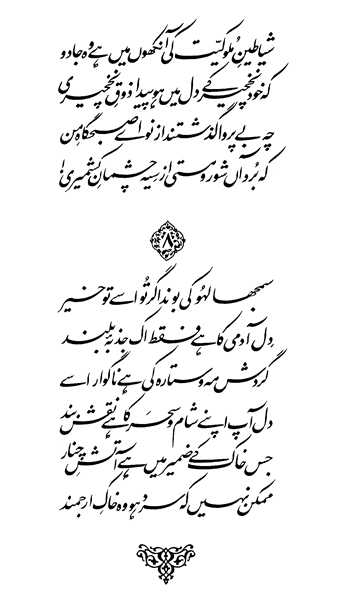 شیاطینِ مُلوکیّت کی آنکھوں میں ہے وہ جادو
کہ خود نخچیر کے دل میں ہو پیدا ذوقِ نخچیری
چہ بے پروا گذشتند از نواے صبحگاہِ من
کہ بُرد آں شور و مستی از سِیہ چشمانِ کشمیری!
۸
سمجھا لہُو کی بوند اگر تُو اسے تو خیر
دِل آدمی کا ہے فقط اک جذبۂ بلند
گردش مہ و ستارہ کی ہے ناگوار اسے
دل آپ اپنے شام و سحَر کا ہے نقش بند
جس خاک کے ضمیر میں ہے آتشِ چنار
ممکن نہیں کہ سرد ہو وہ خاکِ ارجمند